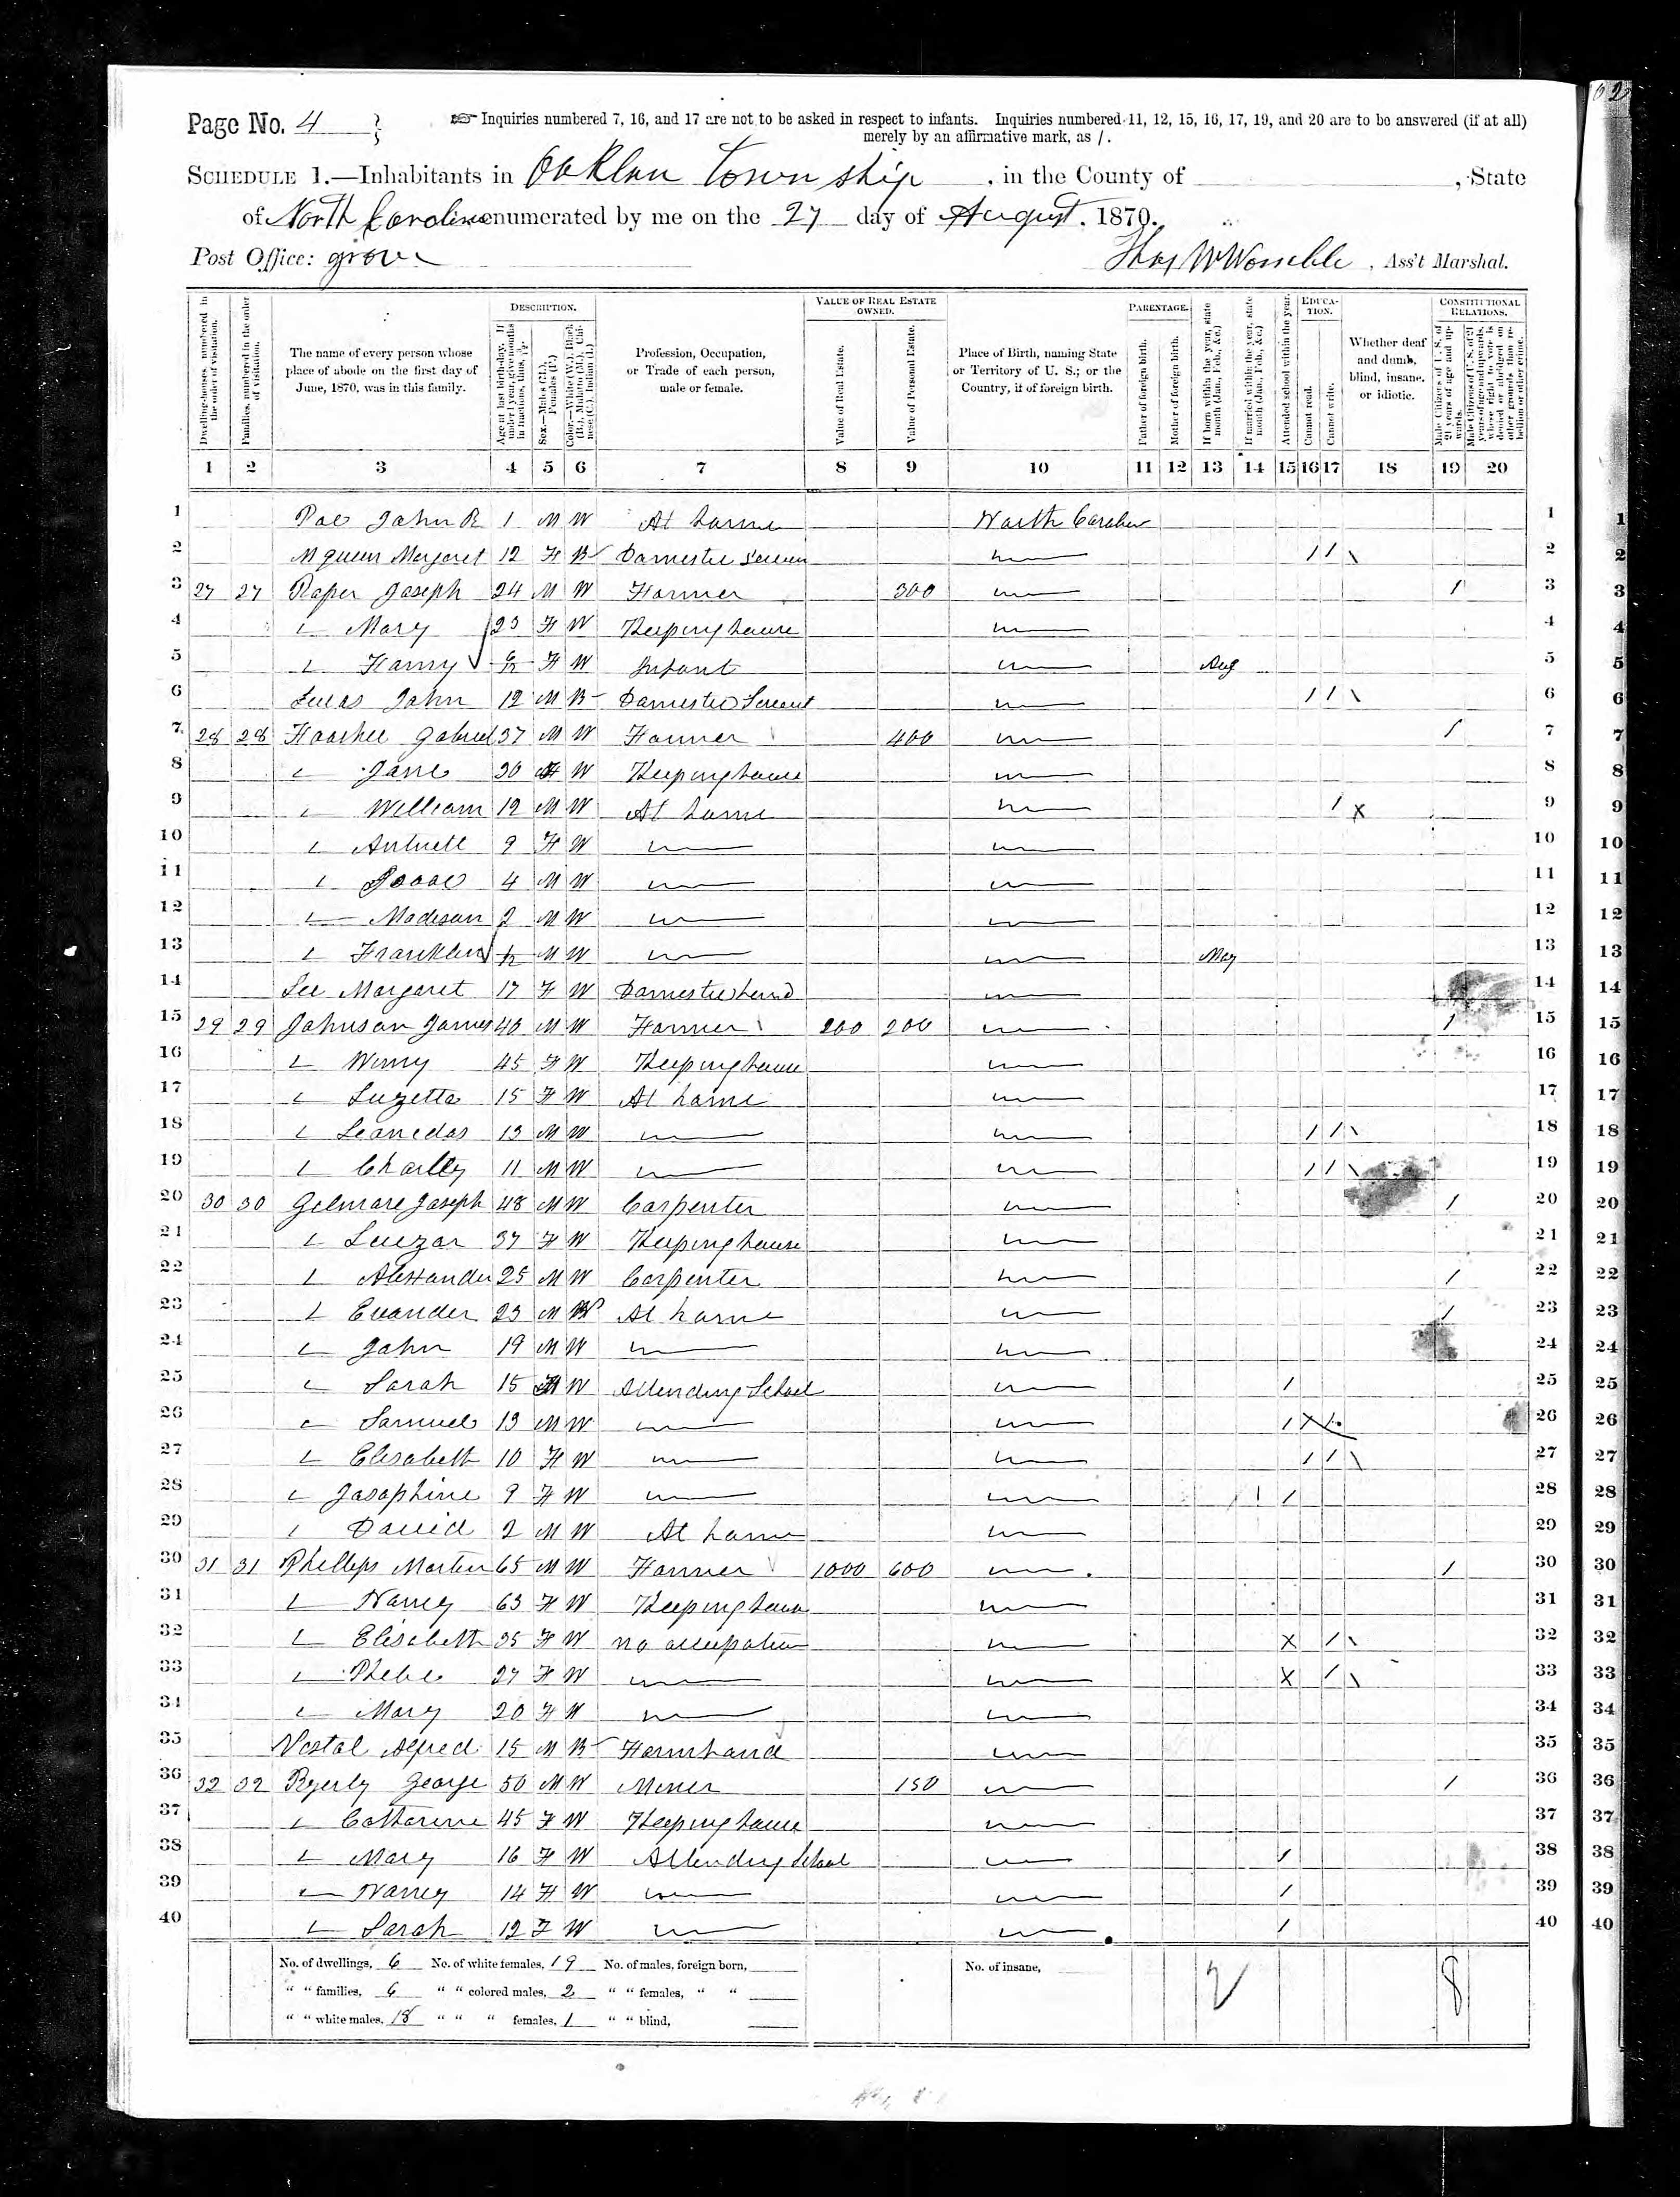 Page No. 4
Inquiries numbered 7, 16, and 17 are not to be asked in respect to infants. Inquiries numbered 11, 12, 15, 16, 17, 19, and 20 are to be answered (if at all)
merely by an affirmative mark, as /.
SCHEDULE 1.—Inhabitants in Oaklan Township, in the County of , State
of North Carolina enumerated by me on the 27 day of August, 1870.
Post Office: Grove Thos W Womble, Ass't Marshal.
Dwelling-houses, numbered in the order of visitation.
Families, numbered in the order of visitation.
The name of every person whose place of abode on the first day of June, 1870, was in this family.
DESCRIPTION.
Age at last birth-day. If under 1 year, give months in fractions, thus, 3/12.
Sex.—Males (M.), Females (F.)
Color.—White (W.), Black (B.), Mulatto (M.), Chinese (C.), Indian (I.)
Profession, Occupation, or Trade of each person, male or female.
VALUE OF REAL ESTATE OWNED.
Value of Real Estate.
Value of Personal Estate.
Place of Birth, naming State or Territory of U. S.; or the Country, if of foreign birth.
PARENTAGE.
Father of foreign birth.
Mother of foreign birth.
If born within the year, state month (Jan., Feb., &c.)
If married within the year, state month (Jan., Feb., &c.)
Attended school within the year.
EDUCATION.
Cannot read.
Cannot write.
Whether deaf and dumb, blind, insane, or idiotic.
CONSTITUTIONAL RELATIONS.
Male Citizens of U. S. of 21 years of age and upwards.
Male Citizens of U. S. of 21 years of age and upwards, where right to vote is denied or abridged on other grounds than rebellion or other crime.
1 2 3 4 5 6 7 8 9 10 11 12 13 14 15 16 17 18 19 20
1 John R 1 M W At home North Carolina 1
2 McQueen Margaret 12 F B Domestic 1 1 2
3 27 27 Roper Joseph 24 M W Farmer 300 1 3
4 Mary 23 F W Keeping house 4
5 F W Infant Aug 5
6 Lucas John 12 M B Domestic Servant 1 1 6
7 28 28 Gabriel 37 M W Farmer 400 1 7
8 Jane 30 F W Keeping house 8
9 William 12 M W At home 1 X 9
10 9 F W 10
11 Isaac 4 M W 11
12 Madison 2 M W 12
13 Franklin M W May 13
14 Lee Margaret 17 F W Domestic 14
15 29 29 Johnson James 40 M W Farmer 200 200 1 15
16 Winny 45 F W Keeping house 16
17 Luzetta 15 F W At home 17
18 Leonidas 13 M W 1 1 18
19 Charlty 11 M W 1 1 19
20 30 30 Gilmore Joseph 48 M W Carpenter 1 20
21 Luezar 37 F W Keeping house 21
22 Alexander 25 M W Carpenter 1 22
23 Evander 23 M W At home 1 23
24 John 19 M W 24
25 Sarah 15 F W Attending School 1 25
26 Samuel 13 M W 1 26
27 Elisabeth 10 F W 1 1 27
28 Josophine 9 F W 1 1 28
29 David 2 M W At home 29
30 31 31 Phillips Martin 65 M W Farmer 1000 600 1 30
31 Nancy 63 F W Keeping house 31
32 Elisabeth 35 F W No occupation X 1 32
33 Phebe 27 F W X 1 33
34 Mary 20 F W 34
35 Vestal Alfred 15 M B Farm hand 35
36 32 32 Byerly George 50 M W Miner 150 1 36
37 Catharine 45 F W Keeping house 37
38 Mary 16 F W Attending School 1 38
39 Nancy 14 F W 1 39
40 Sarah 12 F W 1 40
No. of dwellings, 6 No. of white females, 19 No. of males, foreign born, No. of insane, 2 8
" " families, 6 " " colored males, 2 " " females, " "
" " white males, 18 " " " females, 1 " " blind,